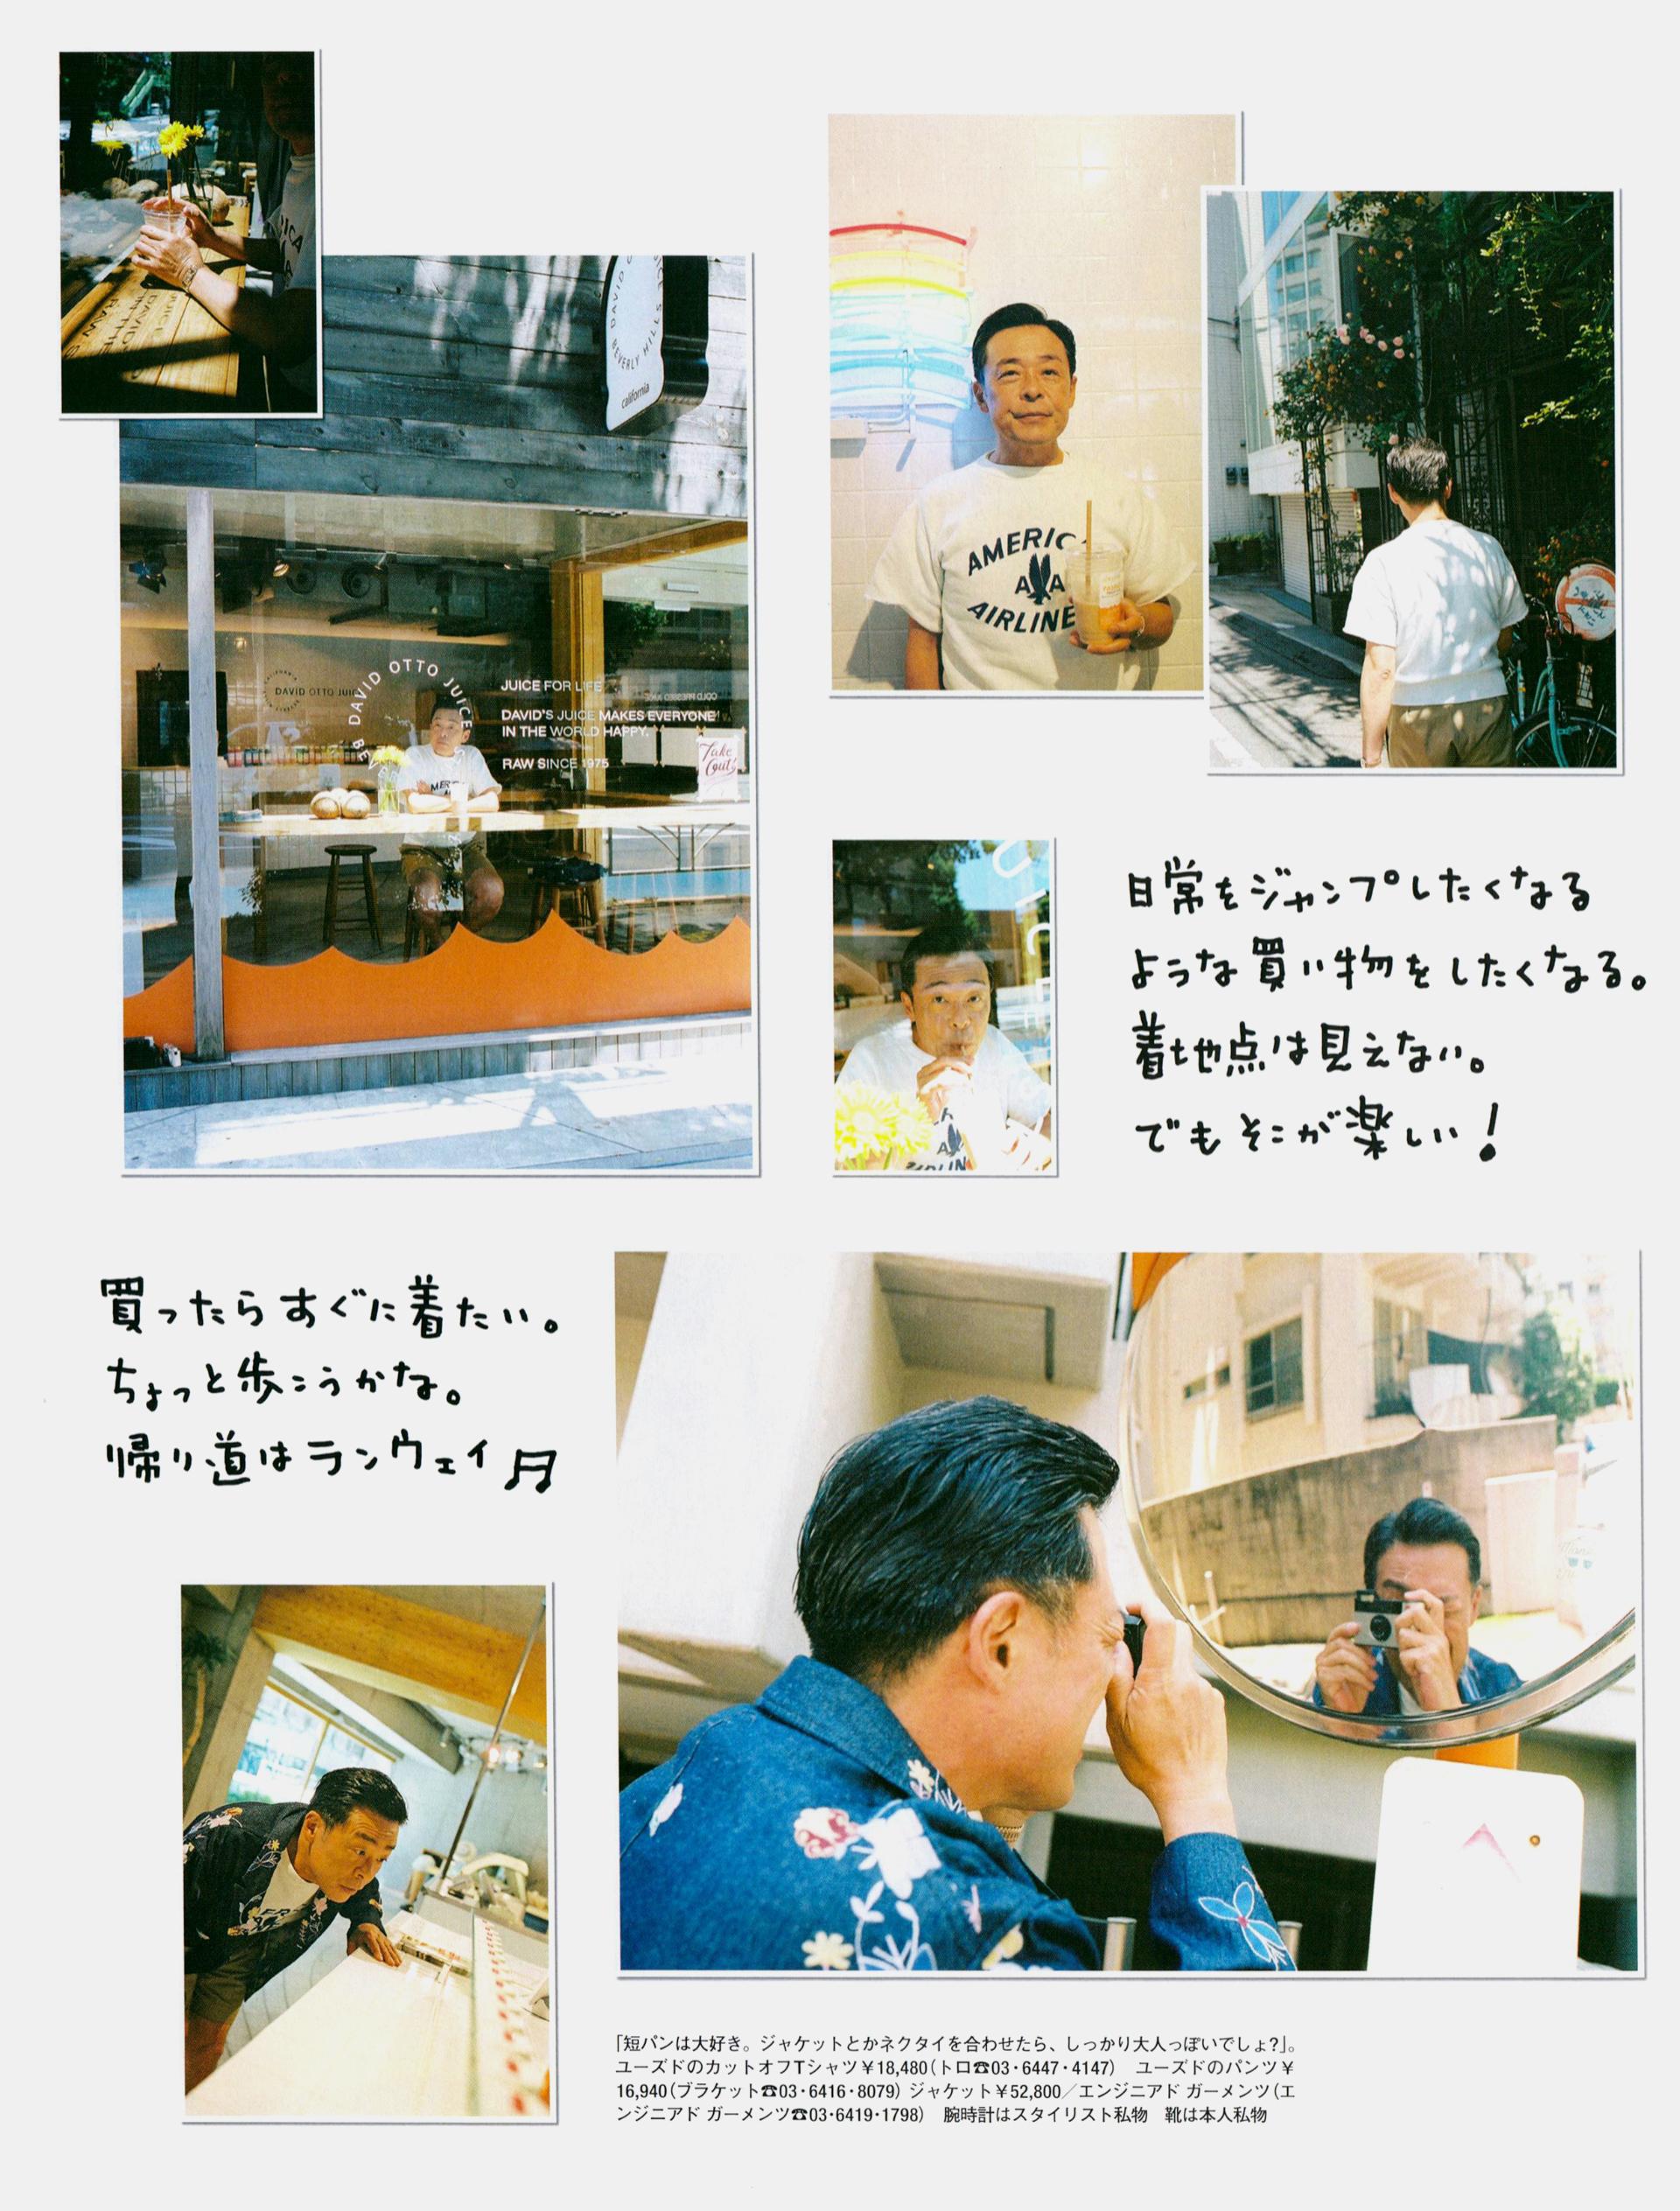 DAVID O
BEVERLY HILLS
california
DAVID OTTO JUICE
BEVE
DAVID OTTO JUICE
JUICE FOR LIFE
DAVID'S JUICE MAKES EVERYONE
IN THE WORLD HAPPY.
RAW SINCE 1975
Take
Out!
AMERIC
AMERICA
A A
AIRLINE
日常をジャンプしたくなる
ような買い物をしたくなる。
着地点は見えない。
でもそこが楽しい!
買ったらすぐに着たい。
ちょっと歩こうかな。
帰り道はランウェイ♬
「短パンは大好き。ジャケットとかネクタイを合わせたら、しっかり大人っぽいでしょ?」。
ユーズドのカットオフTシャツ¥18,480(トロ☎03・6447・4147) ユーズドのパンツ¥
16,940(ブラケット☎03・6416・8079) ジャケット¥52,800/エンジニアド ガーメンツ(エ
ンジニアド ガーメンツ☎03・6419・1798) 腕時計はスタイリスト私物 靴は本人私物